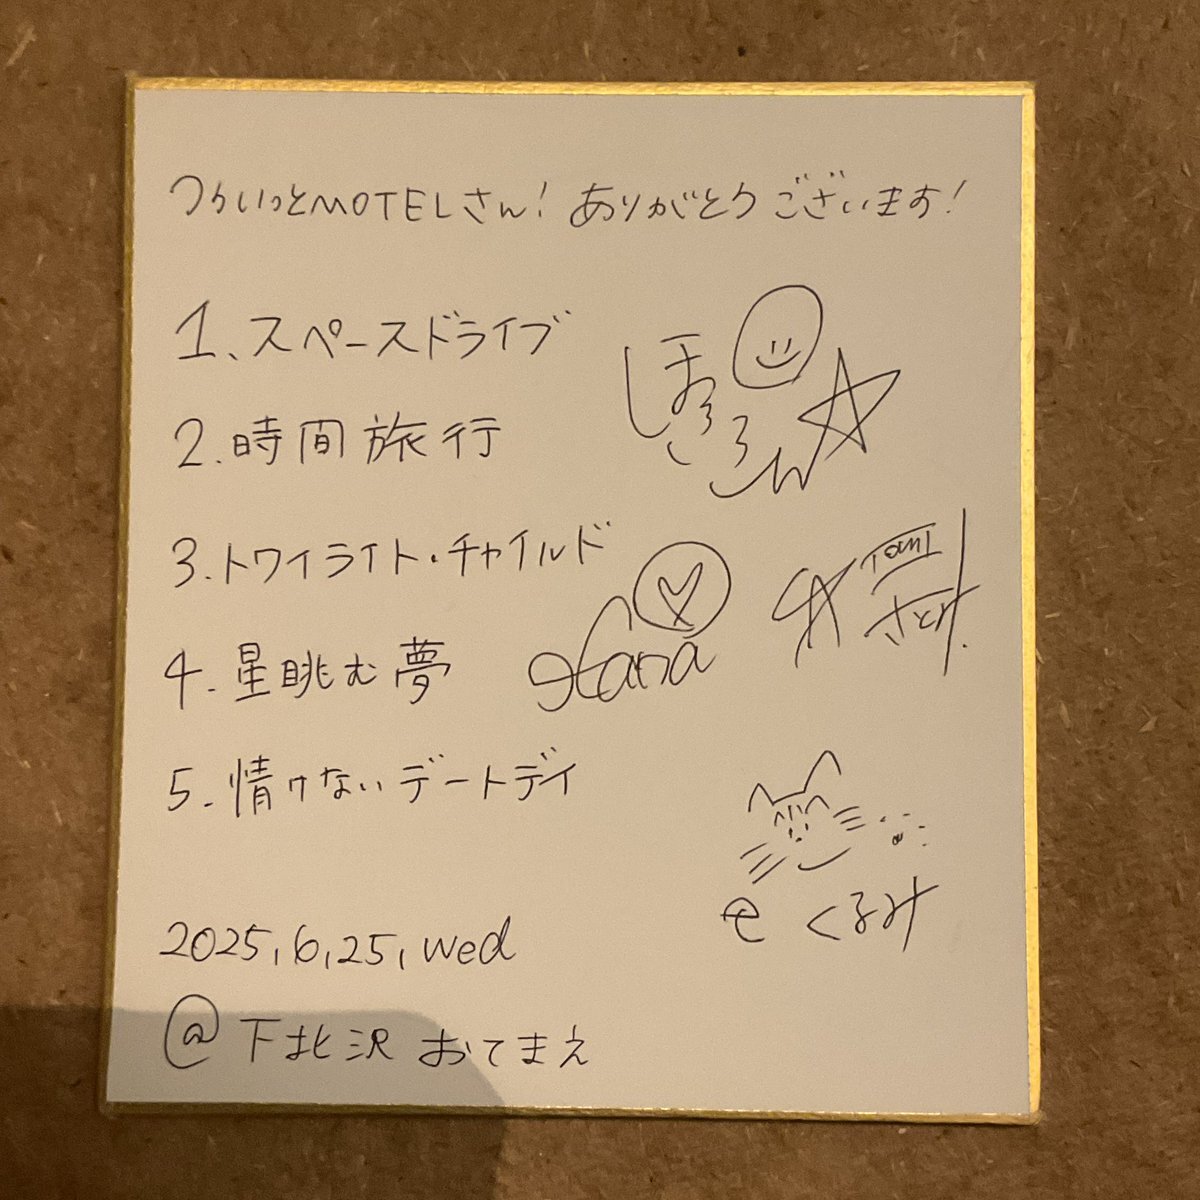 つらいっとMOTELさん! ありがとうございます!
1、スペースドライブ
2.時間旅行
3.トワイライト・チャイルド
4.星眺む夢
5.情けないデートデイ
くるみ
2025,6,25,wed
@下北沢 おてまえ